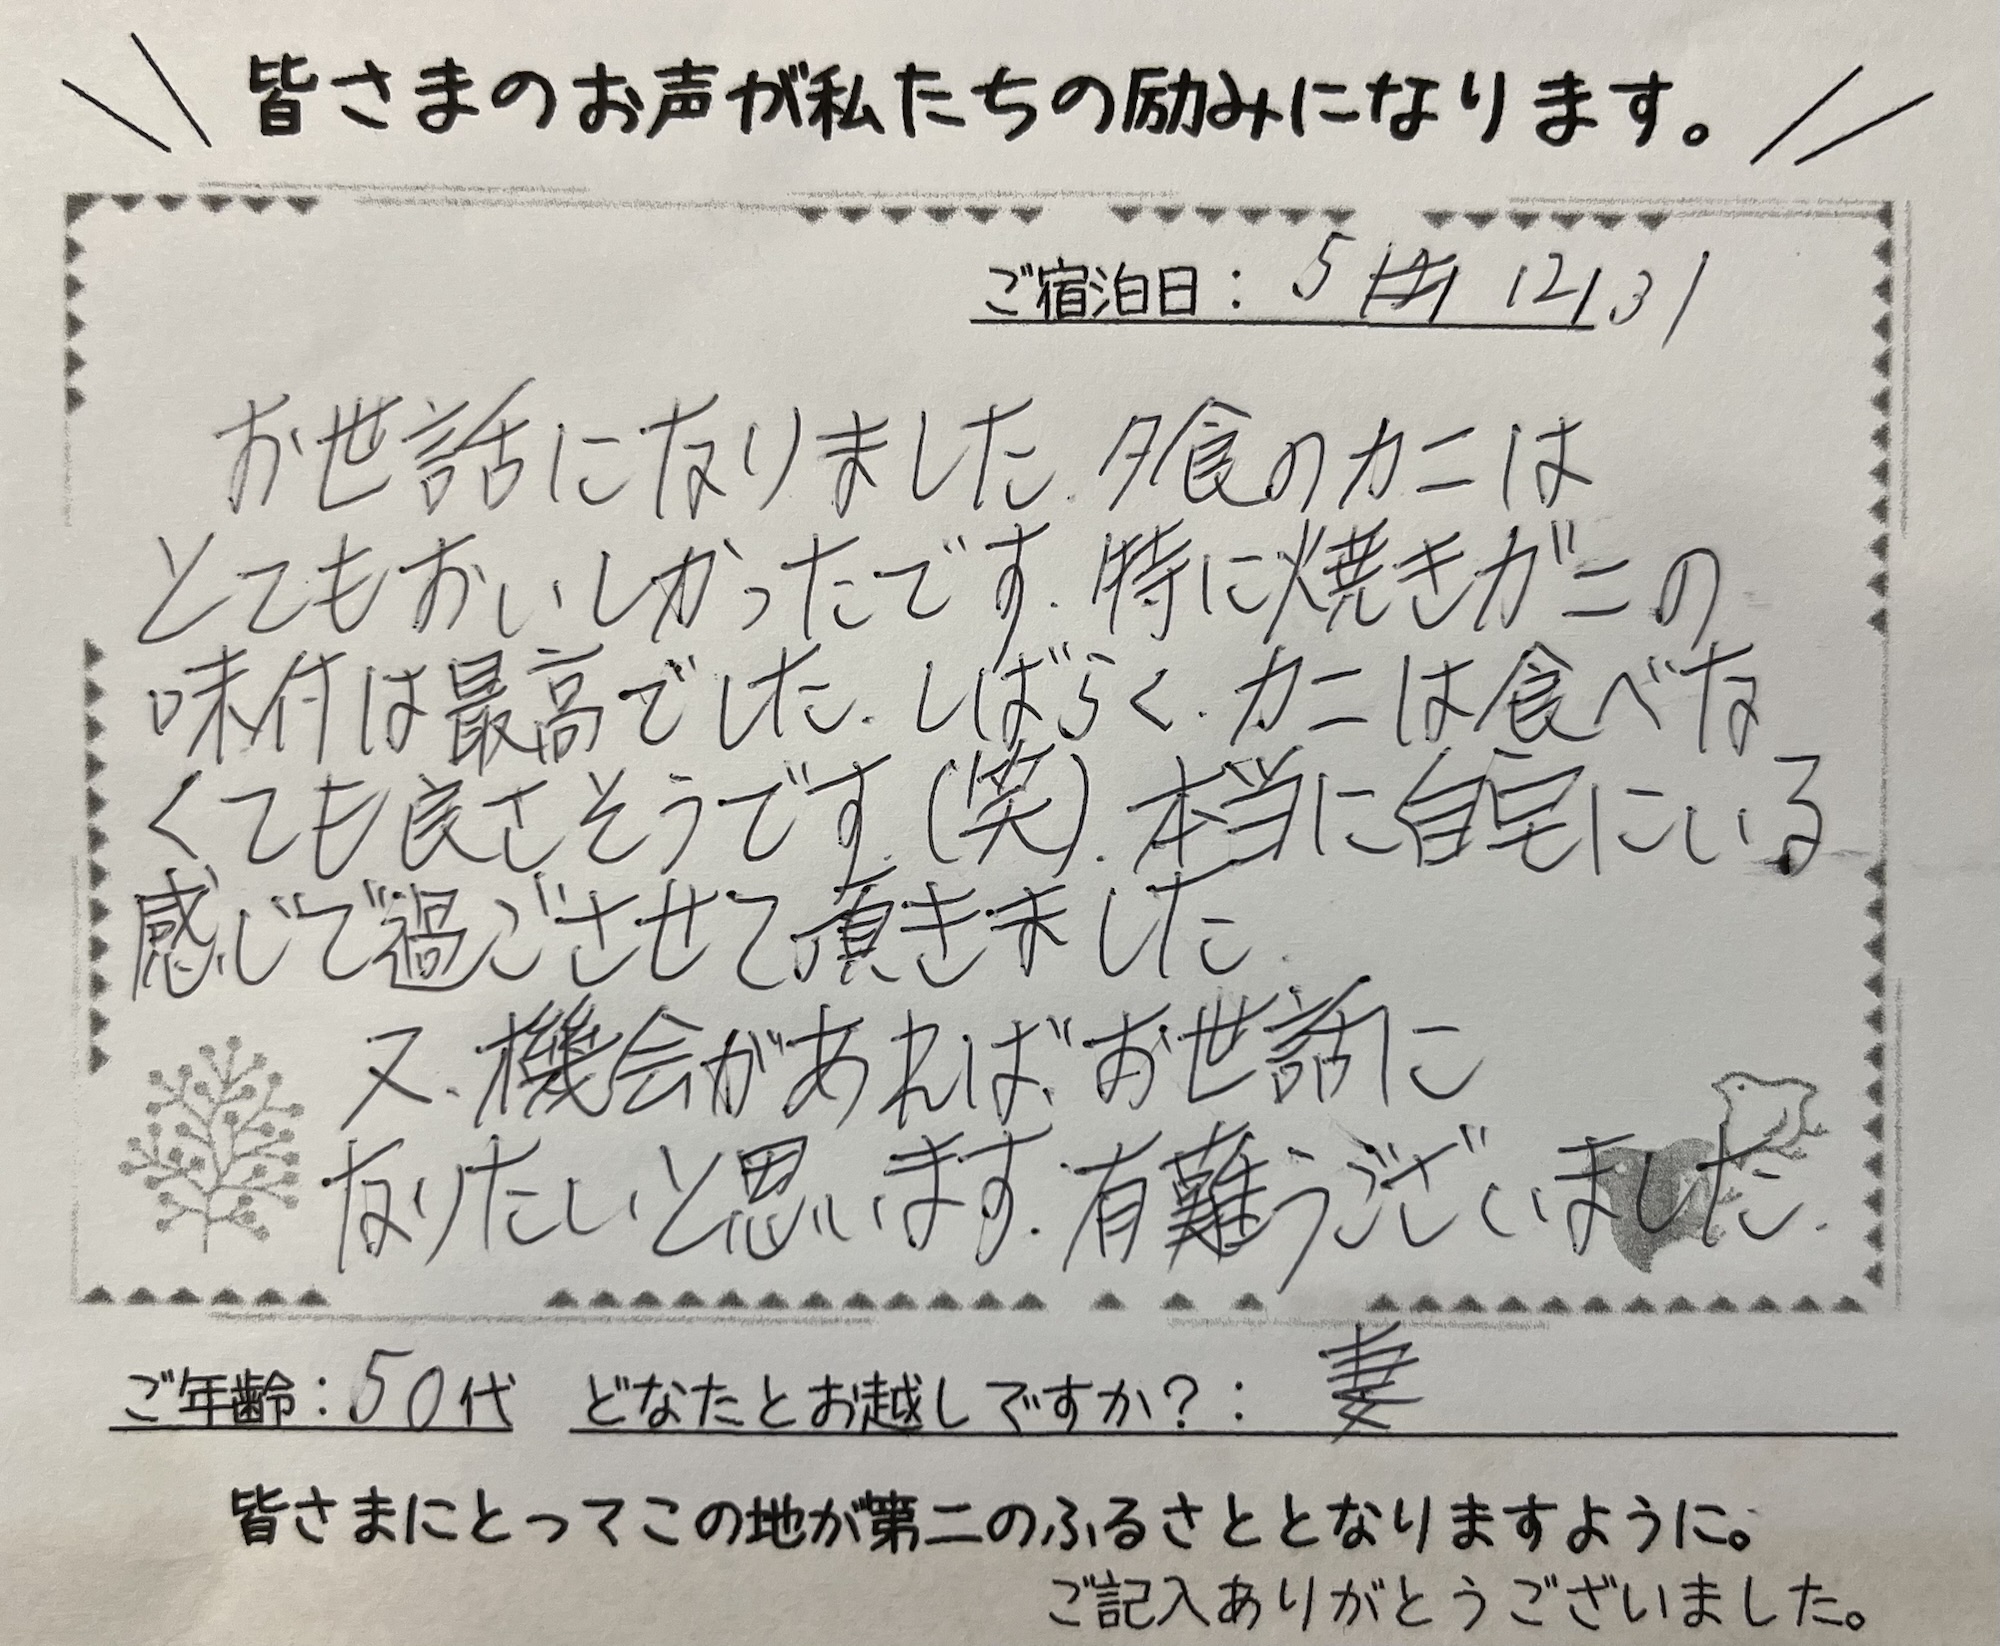 皆さまのお声が私たちの励みになります。
ご宿泊日: 5 12/31
お世話になりました.夕食のカニは
とてもおいしかったです.特に焼きガニの
味付は最高でした.しばらく.カニは食べな
くても良さそうです.(笑).本当に自宅にいる
感じで過ごさせて頂きました.
又.機会があれば.お世話に
なりたいと思います.有難うございました.
ご年齢:50代 どなたとお越しですか?: 妻
皆さまにとってこの地が第二のふるさととなりますように。
ご記入ありがとうございました。